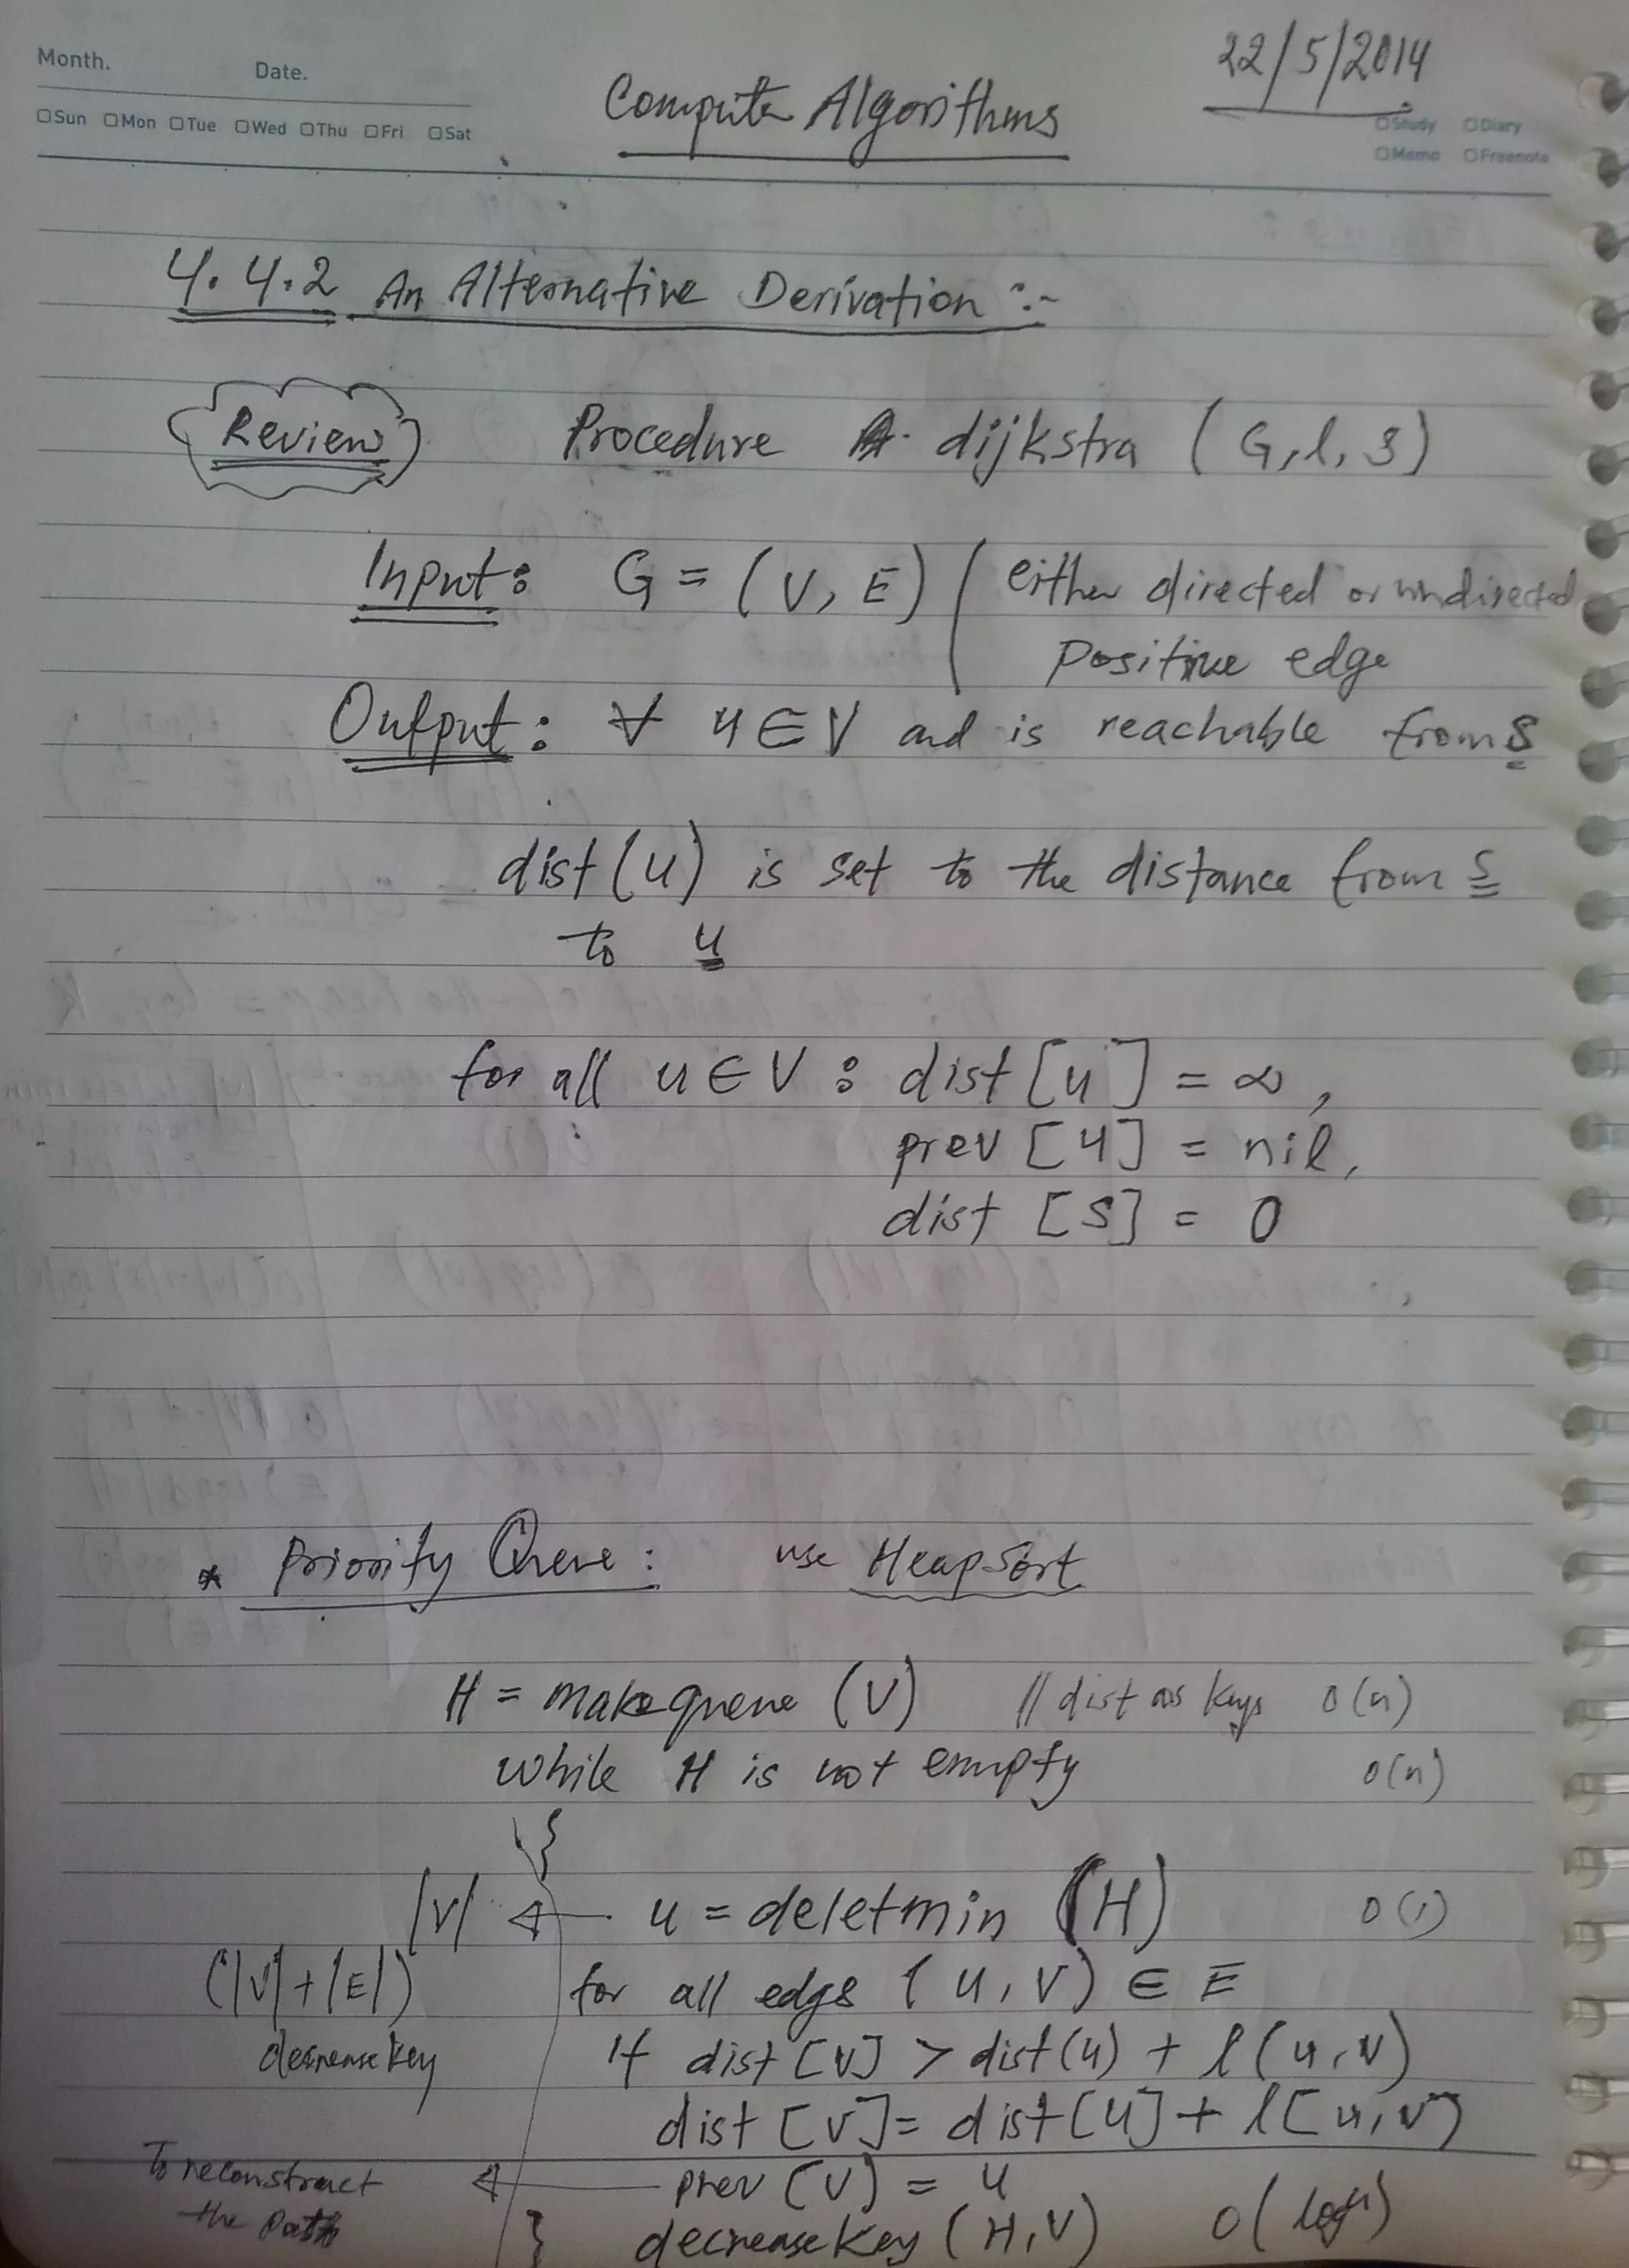 Month. Date.
22/5/2014
Computer Algorithms
□Sun □Mon □Tue □Wed □Thu □Fri □Sat
□Study □Diary
□Memo □Freenote
4.4.2 An Alternative Derivation :-
Review Procedure dijkstra (G, l, s)
Input: G = (V, E) ( either directed or undirected
positive edge
Output: ∀ u ∈ V and is reachable from s
dist(u) is set to the distance from s
to u
for all u ∈ V : dist[u] = ∞,
prev[u] = nil,
dist[s] = 0
* Priority Queue: use Heapsort
H = makequeue (V) // dist as keys O(n)
while H is not empty O(n)
{
|V| ← u = deletmin (H) O(1)
(|V|+|E|) for all edgs (u, v) ∈ E
decrease key If dist[v] > dist(u) + l(u,v)
dist[v] = dist[u] + l[u,v)
To reconstruct ← prev(v) = u
the path } decreasekey (H,V) O(logn)